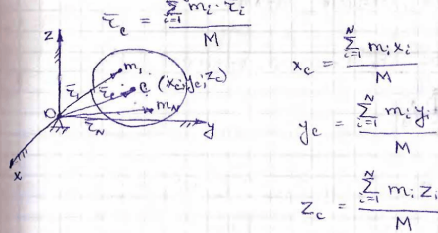 r̄_c = Σ_{i=1}^{N} m_i · r̄_i / M
z
m_1
r̄_1
r̄_c
C (x_c; y_c; z_c)
m_N
O
r̄_N
y
x
x_c = Σ_{i=1}^{N} m_i x_i / M
y_c = Σ_{i=1}^{N} m_i y_i / M
z_c = Σ_{i=1}^{N} m_i z_i / M